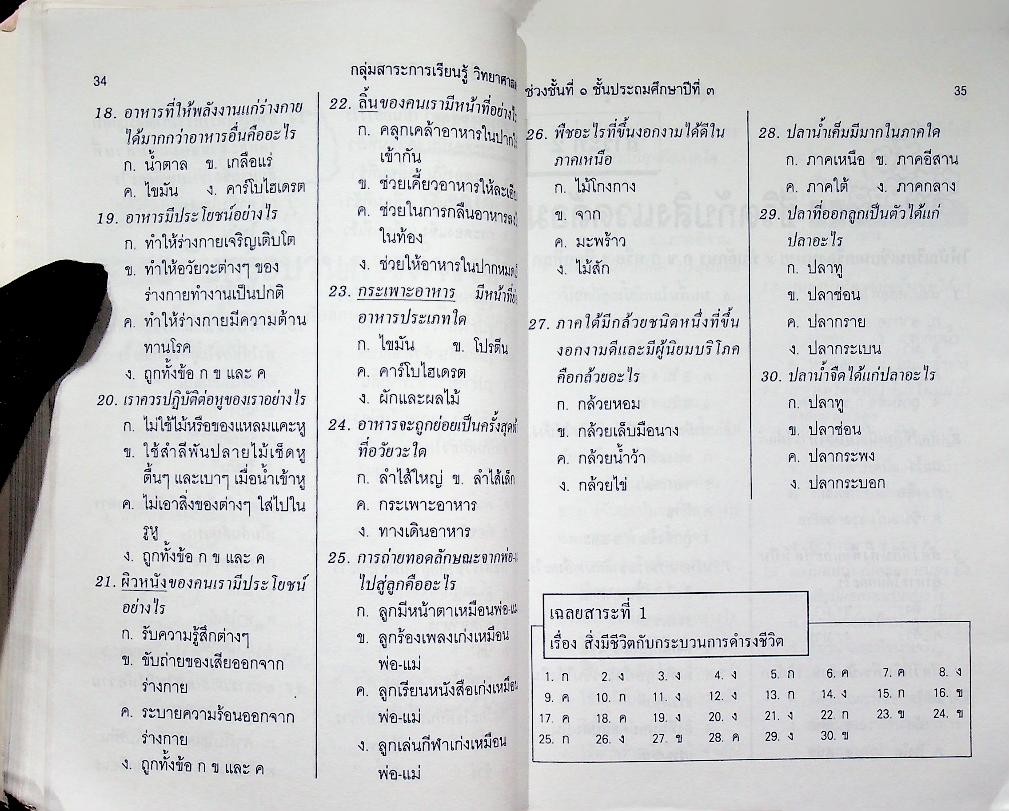 34
กลุ่มสาระการเรียนรู้ วิทยาศาส
18. อาหารที่ให้พลังงานแก่ร่างกาย
ได้มากกว่าอาหารอื่นคืออะไร
ก. น้ำตาล ข. เกลือแร่
ค. ไขมัน ง. คาร์โบไฮเดรต
19. อาหารมีประโยชน์อย่างไร
ก. ทำให้ร่างกายเจริญเติบโต
ข. ทำให้อวัยวะต่างๆ ของ
ร่างกายทำงานเป็นปกติ
ค. ทำให้ร่างกายมีความต้าน
ทานโรค
ง. ถูกทั้งข้อ ก ข และ ค
20. เราควรปฏิบัติต่อหูของเราอย่างไร
ก. ไม่ใช้ไม้หรือของแหลมแคะหู
ข. ใช้สำลีพันปลายไม้เช็ดหู
ตื้นๆ และเบาๆ เมื่อน้ำเข้าหู
ค. ไม่เอาสิ่งของต่างๆ ใส่ไปใน
รูหู
ง. ถูกทั้งข้อ ก ข และ ค
21. ผิวหนังของคนเรามีประโยชน์
อย่างไร
ก. รับความรู้สึกต่างๆ
ข. ขับถ่ายของเสียออกจาก
ร่างกาย
ค. ระบายความร้อนออกจาก
ร่างกาย
ง. ถูกทั้งข้อ ก ข และ ค
22. ลิ้นของคนเรามีหน้าที่อย่างไ
ก. คลุกเคล้าอาหารในปาก
เข้ากัน
ข. ช่วยเคี้ยวอาหารให้ละเอีย
ค. ช่วยในการกลืนอาหารลง
ในท้อง
ง. ช่วยให้อาหารในปากหมด
23. กระเพาะอาหาร มีหน้าที่
อาหารประเภทใด
ก. ไขมัน ข. โปรตีน
ค. คาร์โบไฮเดรต
ง. ผักและผลไม้
24. อาหารจะถูกย่อยเป็นครั้งสุด
ที่อวัยวะใด
ก. ลำไส้ใหญ่ ข. ลำไส้เล็ก
ค. กระเพาะอาหาร
ง. ทางเดินอาหาร
25. การถ่ายทอดลักษณะจากพ่อ-แ
ไปสู่ลูกคืออะไร
ก. ลูกมีหน้าตาเหมือนพ่อ-แม่
ข. ลูกร้องเพลงเก่งเหมือน
พ่อ-แม่
ค. ลูกเรียนหนังสือเก่งเหมือน
พ่อ-แม่
ง. ลูกเล่นกีฬาเก่งเหมือน
พ่อ-แม่
ช่วงชั้นที่ ๑ ชั้นประถมศึกษาปีที่ ๓
35
26. พืชอะไรที่ขึ้นงอกงามได้ดีใน
ภาคเหนือ
ก. ไม้โกงกาง
ข. จาก
ค. มะพร้าว
ง. ไม้สัก
27. ภาคใต้มีกล้วยชนิดหนึ่งที่ขึ้น
งอกงามดีและมีผู้นิยมบริโภค
คือกล้วยอะไร
ก. กล้วยหอม
ข. กล้วยเล็บมือนาง
ค. กล้วยน้ำว้า
ง. กล้วยไข่
28. ปลาน้ำเค็มมีมากในภาคใด
ก. ภาคเหนือ ข. ภาคอีสาน
ค. ภาคใต้ ง. ภาคกลาง
29. ปลาที่ออกลูกเป็นตัวได้แก่
ปลาอะไร
ก. ปลาทู
ข. ปลาช่อน
ค. ปลากราย
ง. ปลากระเบน
30. ปลาน้ำจืดได้แก่ปลาอะไร
ก. ปลาทู
ข. ปลาช่อน
ค. ปลากระพง
ง. ปลากระบอก
เฉลยสาระที่ 1
เรื่อง สิ่งมีชีวิตกับกระบวนการดำรงชีวิต
1. ก 2. ง 3. ง 4. ง 5. ก 6. ค 7. ค 8. ง
9. ค 10. ก 11. ง 12. ง 13. ก 14. ง 15. ก 16. ข
17. ค 18. ค 19. ง 20. ง 21. ง 22. ก 23. ข 24. ข
25. ก 26. ง 27. ข 28. ค 29. ง 30. ข